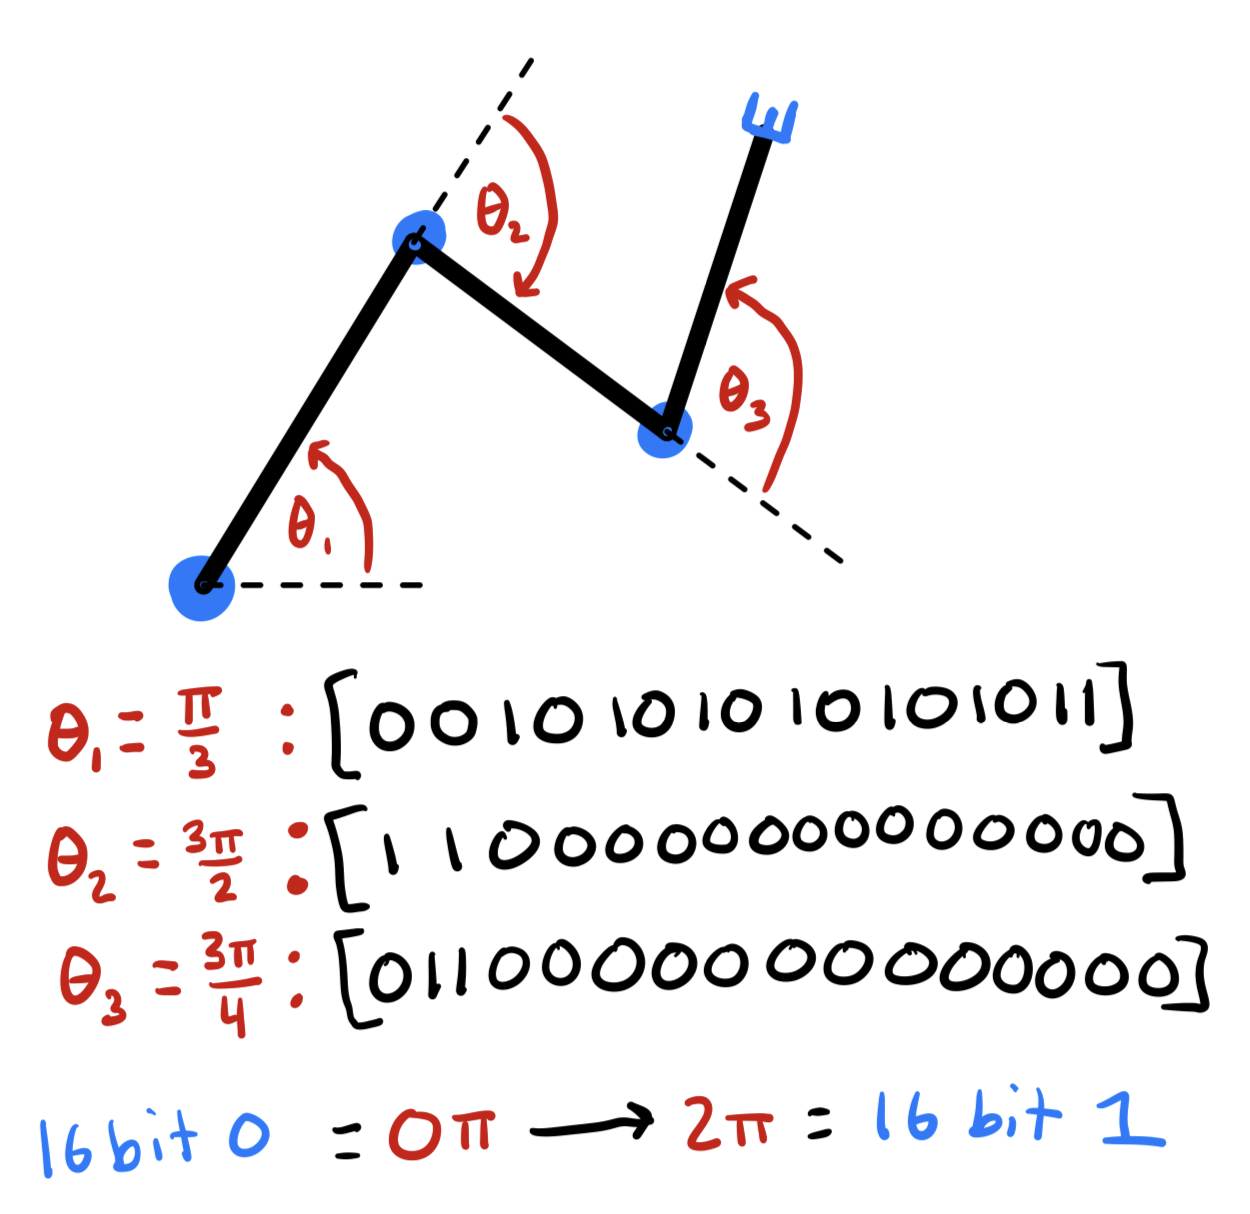 θ₂
θ₃
θ₁
θ₁ = π/3 : [0010101010101011]
θ₂ = 3π/2 : [1100000000000000]
θ₃ = 3π/4 : [0110000000000000]
16 bit 0 = 0π → 2π = 16 bit 1